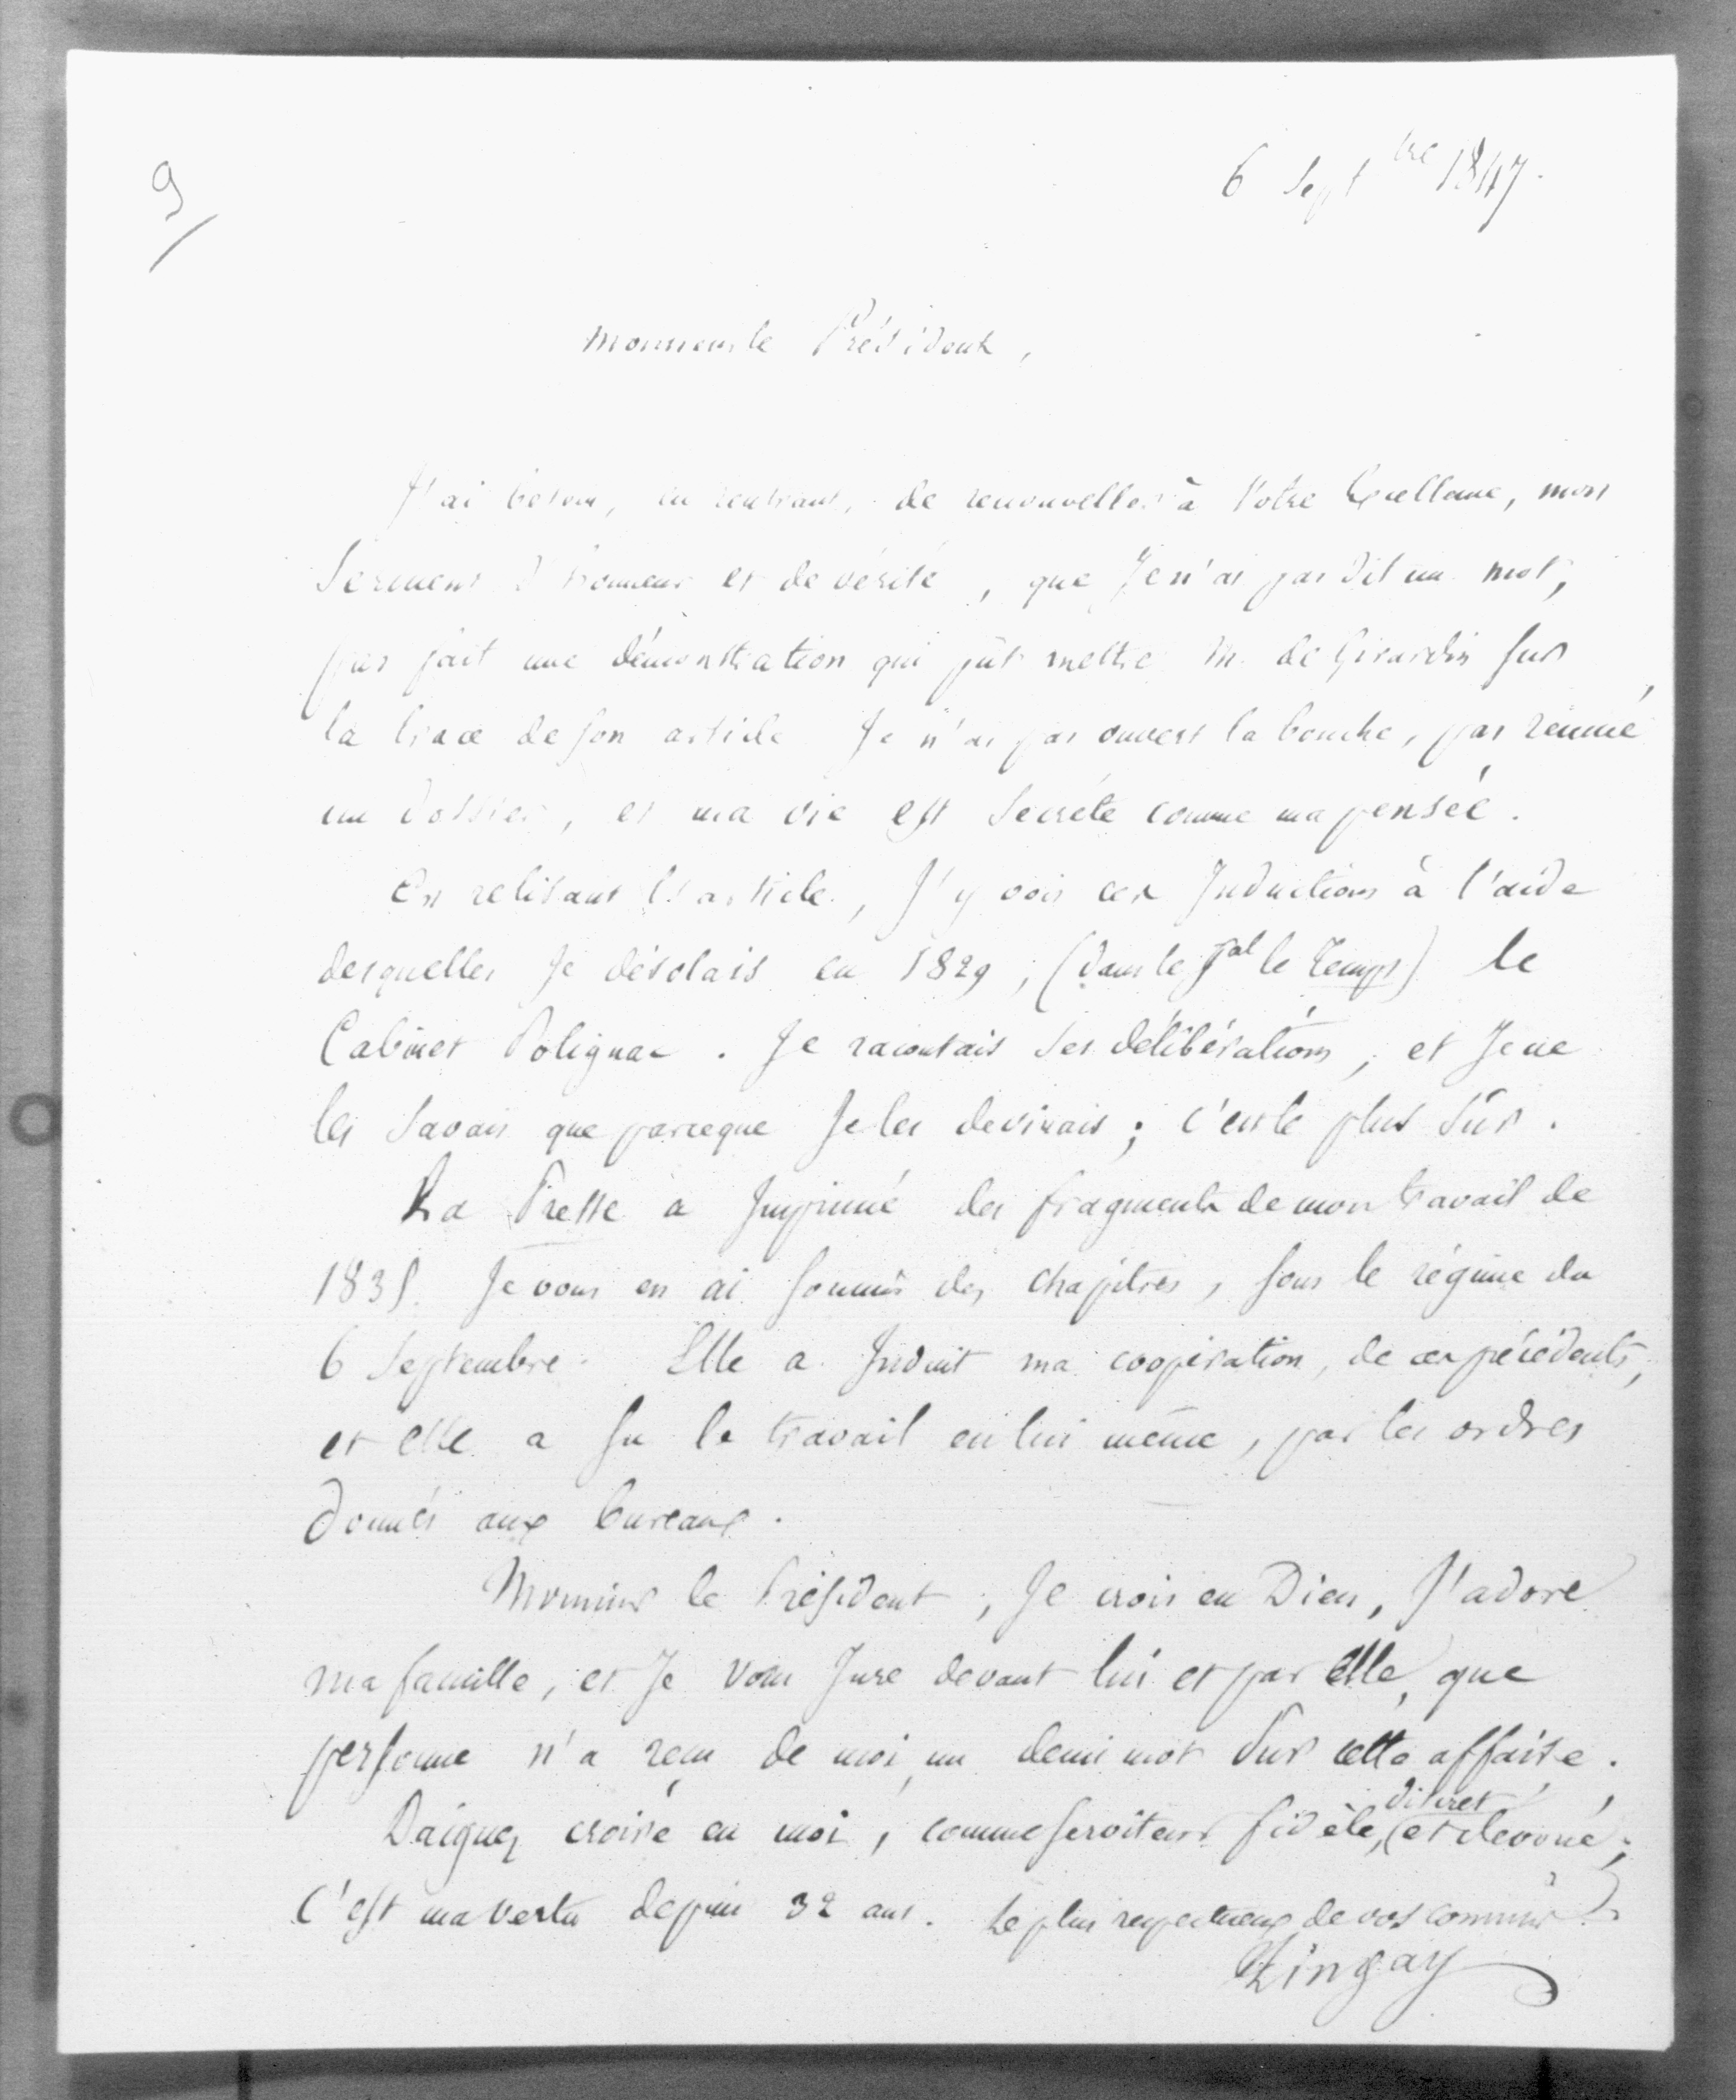 9
6 Sept bre 1847.
Monsieur le Président,
J'ai besoin, en rentrant, de renouveller à Votre Excellence, mon
Serment d'honneur et de vérité, que Je n'ai pas dit un mot,
pas fait une démonstration qui pût mettre M. de Girardin sur
la trace de son article. Je n'ai pas ouvert la bouche, pas remué
un dossier, et ma vie est Secrète comme ma pensée.
En relisant l'article, J'y vois ces Inductions à l'aide
desquelles Je désolais en 1829, (dans le Jal le Temps) le
Cabinet Polignac. Je racontais ses délibérations, et Je ne
les Savais que parceque Je les devinais ; c'est le plus Sûr.
La Presse a Imprimé des fragments de mon travail de
1835. Je vous en ai soumis des chapitres, sous le régime du
6 Septembre. Elle a Induit ma coopération, de ces précédents,
et elle a su le travail en lui même, par les ordres
donnés aux bureaux.
Monsieur le Président, Je crois en Dieu, J'adore
ma famille, et Je vous Jure devant lui et par elle, que
personne n'a reçu de moi, un demi mot Sur cette affaire.
Daignez croire en moi, comme serviteur fidèle, discret et dévoué ;
C'est ma vertu depuis 32 ans. Le plus respectueux de vos commis
Lingay